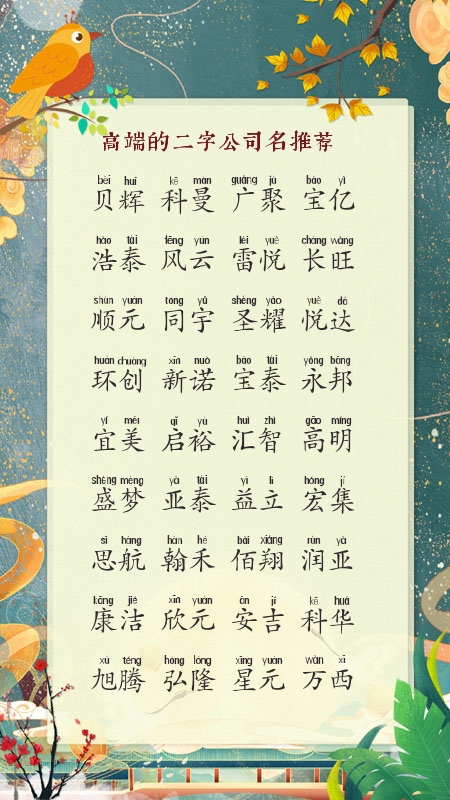 高端的二字公司名推荐
bèi huī kē màn guǎng jù bǎo yì
贝辉 科曼 广聚 宝亿
hào tài fēng yún léi yuè cháng wàng
浩泰 风云 雷悦 长旺
shùn yuán tóng yǔ shèng yào yuè dá
顺元 同宇 圣耀 悦达
huán chuàng xīn nuò bǎo tài yǒng bāng
环创 新诺 宝泰 永邦
yí měi qǐ yù huì zhì gāo míng
宜美 启裕 汇智 高明
shèng mèng yà tài yì lì hóng jí
盛梦 亚泰 益立 宏集
sī háng hàn hé bǎi xiáng rùn yà
思航 翰禾 佰翔 润亚
kāng jié xīn yuán ān jí kē huá
康洁 欣元 安吉 科华
xù téng hóng lóng xīng yuán wàn xī
旭腾 弘隆 星元 万西